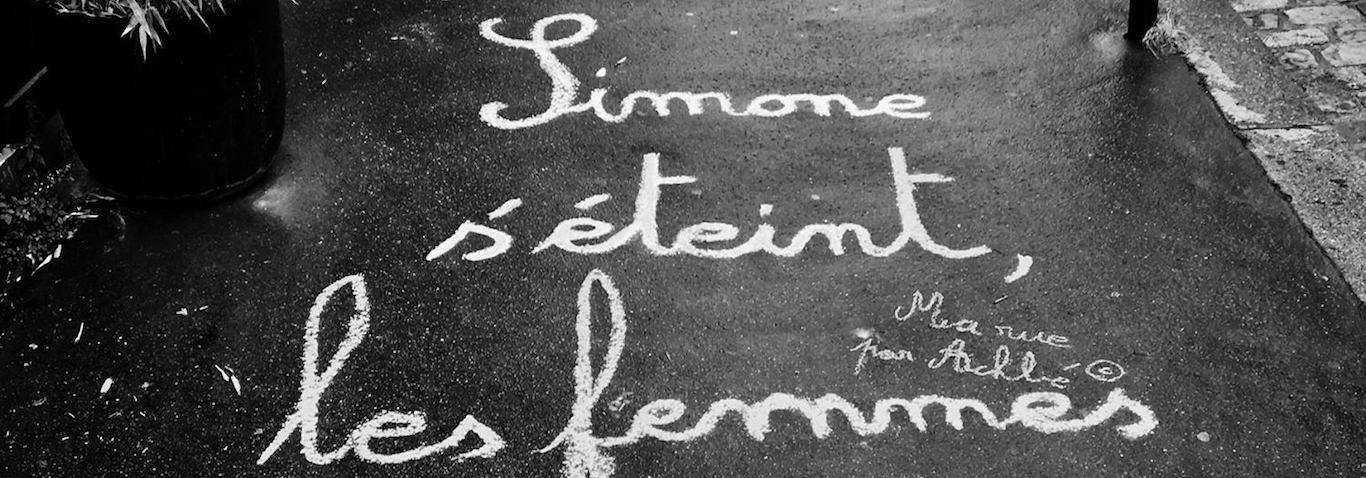 Simone
s'éteint,
les femmes.
Ma rue
par Achbé ©